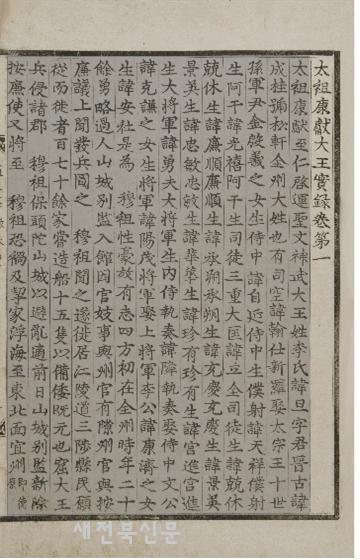 太祖康獻大王實錄卷第一
太祖康獻至仁啓運聖文神武大王姓李氏諱旦字君晋古諱
成桂號松軒全州大姓也有司空諱翰仕新羅娶太宗王十世
孫軍尹金殷義之女生侍中諱自延侍中生僕射諱天祥僕射
生阿干諱光禧阿干生司徒三重大匡諱立全司徒生諱兢休
兢休生諱廉順廉順生諱承朔承朔生諱充慶充慶生諱景英
景英生諱忠敏忠敏生諱華華生諱珍有珍有生諱宮進宮進
生大將軍諱勇夫大將軍生内侍執奏諱隣執奏娶侍中文公
諱克謙之女生將軍諱陽茂將軍娶上將軍李公諱康濟之女
生諱安社是爲 穆祖性豪放有志四方初在全州時年二十
餘勇略過人山城別監入館因官妓事與州官有隙州官與按
廉議上聞發兵圖之 穆祖聞之遂徙居江陵道三陟縣民願
從而徙者百七十餘家嘗造船十五隻以備倭旣元也窟大王
兵侵諸郡 穆祖保頭陀山城以避亂適前日山城別監新除
按廉使又將至 穆祖恐禍及挈家浮海至東北面宜州卽德
새전북신문